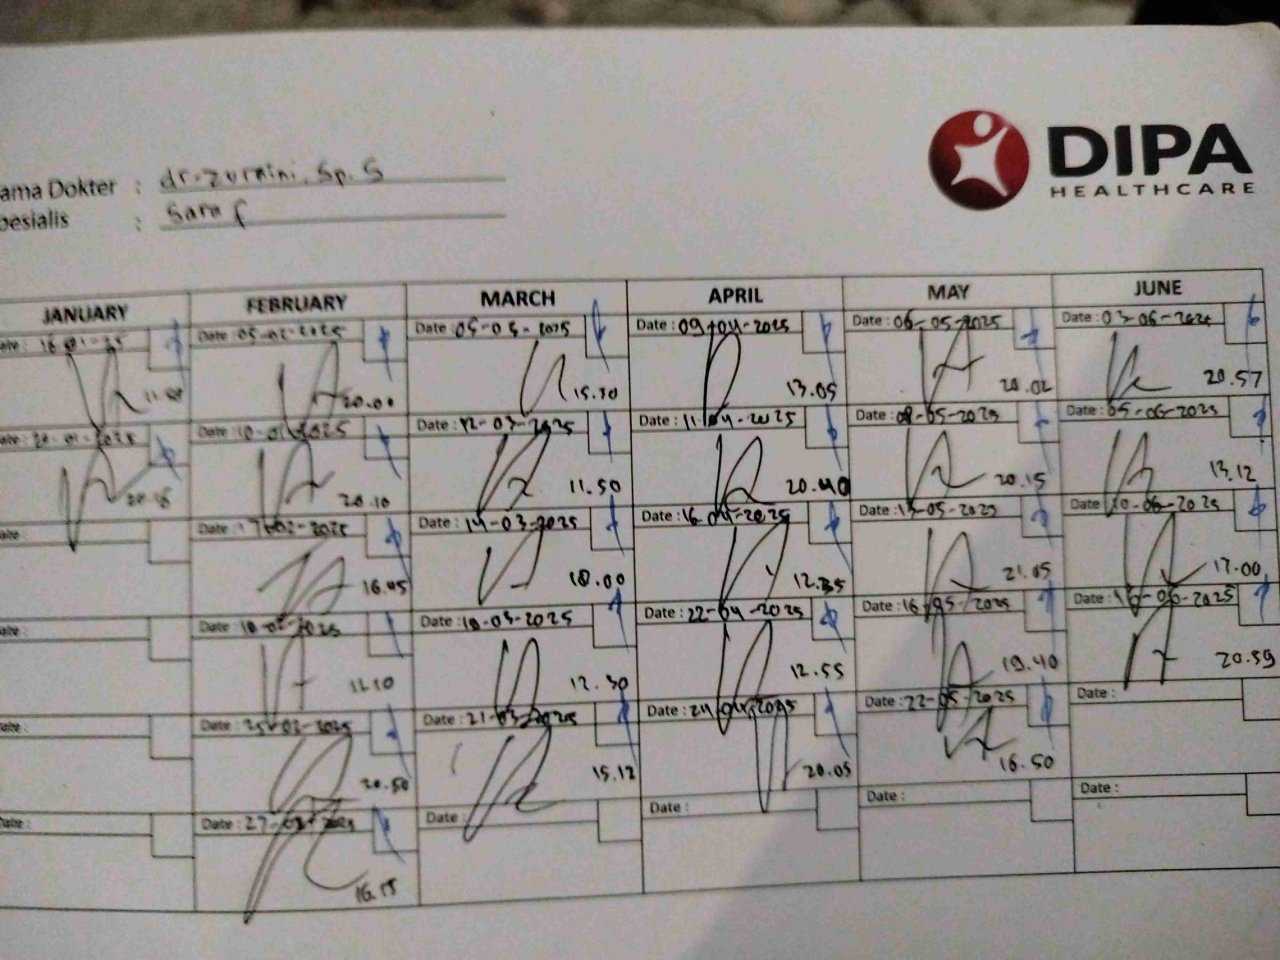 DIPA
HEALTHCARE
ama Dokter : dr. Zurnini, Sp. S
pesialis : Saraf
JANUARY FEBRUARY MARCH APRIL MAY JUNE
Date : 05-02-2025 Date : 05-03-2025 Date : 09-04-2025 Date : 06-05-2025 Date : 03-06-2025
20.00 15.30 13.05 20.02 20.57
Date : 12-03-2025 Date : 11-04-2025 Date : 08-05-2025 Date : 05-06-2025
20.10 11.50 20.40 20.15 13.12
Date : 17-02-2025 Date : 14-03-2025 Date : 16-04-2025 Date : 13-05-2025 Date : 10-06-2025
16.45 18.00 12.35 21.05 17.00
Date : Date : 18-03-2025 Date : 22-04-2025 Date : 16-05-2025 Date : 16-06-2025
12.30 12.55 19.40 20.59
Date : 25-02-2025 Date : 21-03-2025 Date : 24-04-2025 Date : 22-05-2025 Date :
20.50 15.12 20.05 16.50
Date : 27-02-2025 Date : Date : Date : Date :
16.15